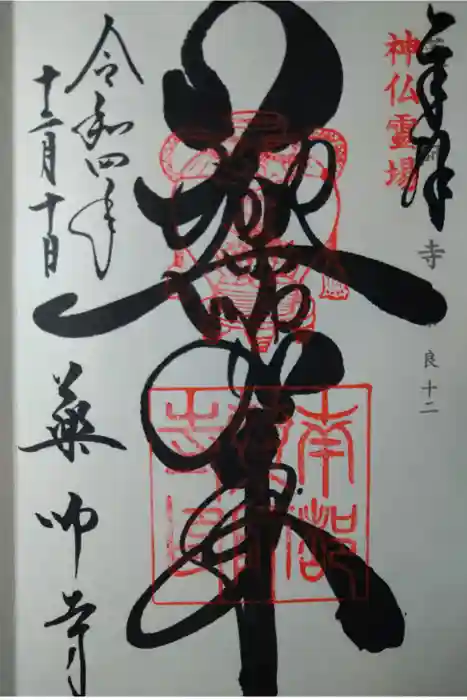 奉拝
神仏霊場
寺
良十二
薬師如来
令和四年
十二月十日
薬師寺